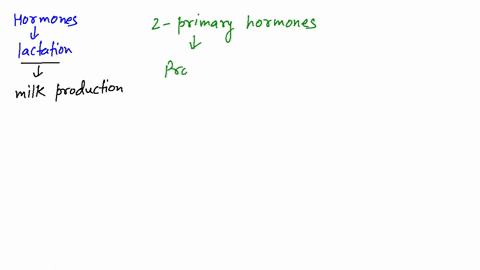 Hormones
lactation
milk production
2- primary hormones
Prc